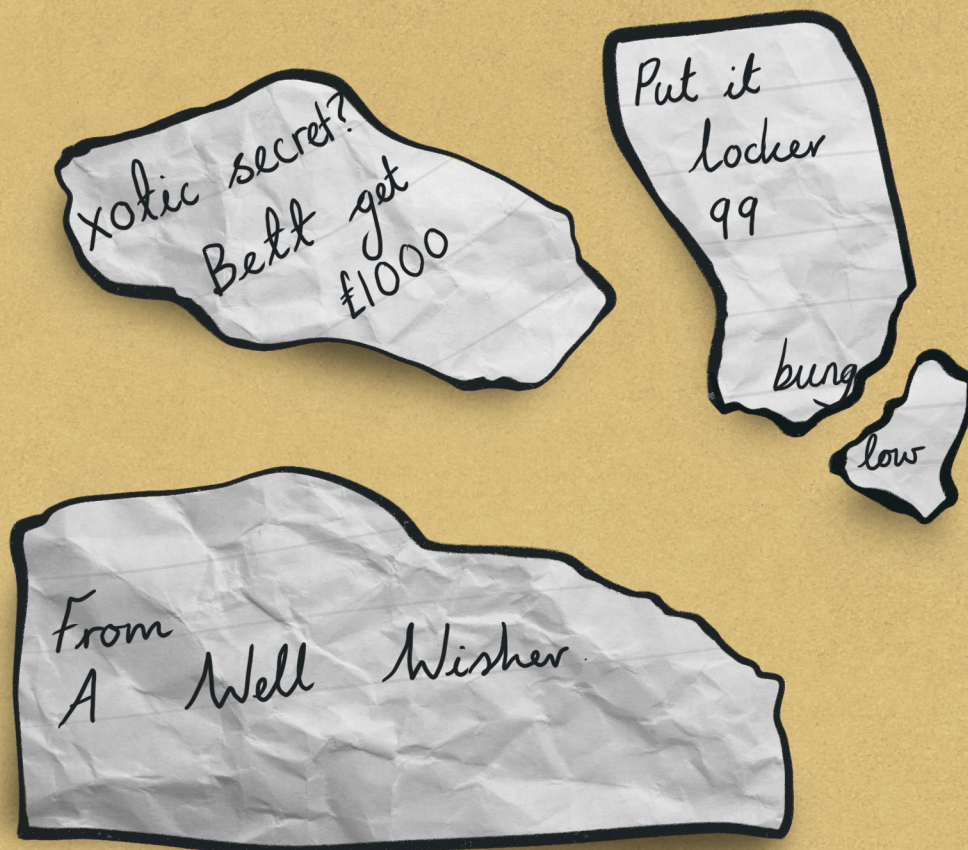 xotic secret?
Bett get
£1000
Put it
locker
99
bung
low
From
A Well Wisher